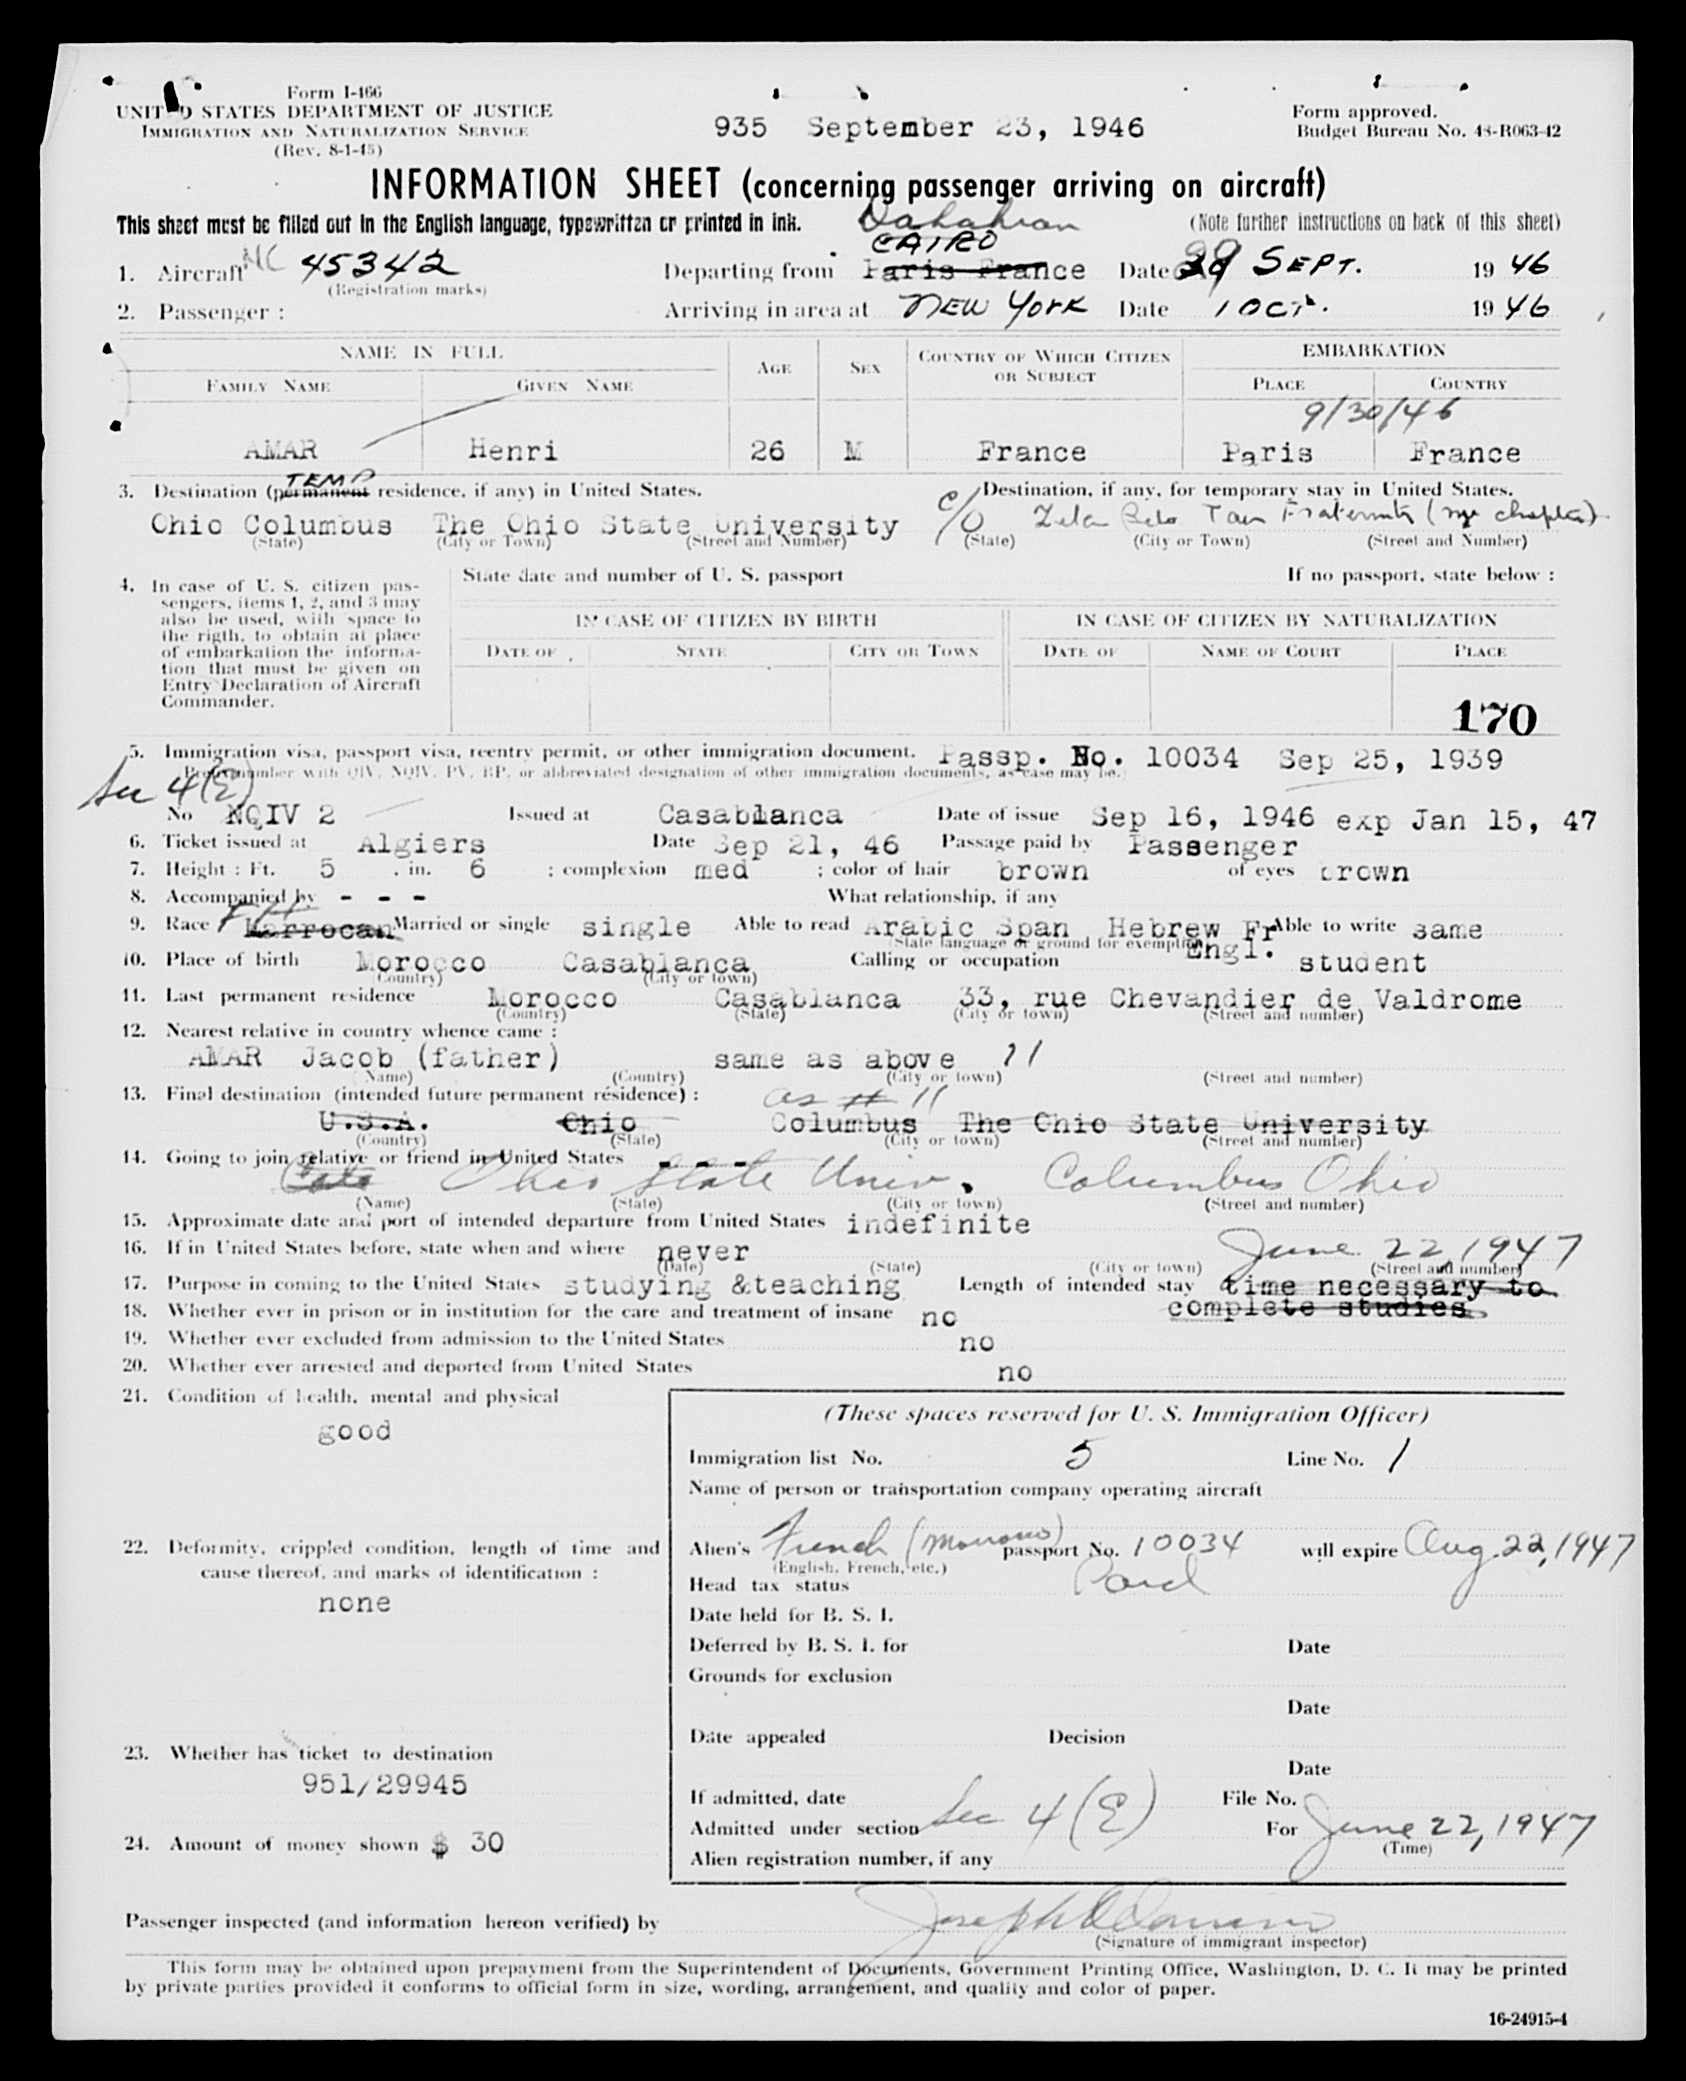 Form I-466
UNITED STATES DEPARTMENT OF JUSTICE
IMMIGRATION AND NATURALIZATION SERVICE
(Rev. 8-1-45)
935 September 23, 1946
Form approved.
Budget Bureau No. 43-R063-42
INFORMATION SHEET (concerning passenger arriving on aircraft)
This sheet must be filled out in the English language, typewritten or printed in ink.
(Note further instructions on back of this sheet)
Dahahran
CAIRO
1. Aircraft NC 45342 Departing from Paris France Date 29 SEPT. 19 46
(Registration marks)
2. Passenger : Arriving in area at NEW YORK Date 1 OCT. 19 46
NAME IN FULL AGE SEX COUNTRY OF WHICH CITIZEN OR SUBJECT EMBARKATION
FAMILY NAME GIVEN NAME PLACE COUNTRY
9/30/46
AMAR Henri 26 M France Paris France
TEMP
3. Destination (permanent residence, if any) in United States. Destination, if any, for temporary stay in United States.
Ohio Columbus The Ohio State University c/o Zeta Beta Tau Fraternity (nye chapter)
(State) (City or Town) (Street and Number) (State) (City or Town) (Street and Number)
4. In case of U. S. citizen pas-
sengers, items 1, 2, and 3 may
also be used, with space to
the rigth, to obtain at place
of embarkation the informa-
tion that must be given on
Entry Declaration of Aircraft
Commander.
State date and number of U. S. passport If no passport, state below :
IN CASE OF CITIZEN BY BIRTH IN CASE OF CITIZEN BY NATURALIZATION
DATE OF STATE CITY OR TOWN DATE OF NAME OF COURT PLACE
170
5. Immigration visa, passport visa, reentry permit, or other immigration document. Passp. No. 10034 Sep 25, 1939
Prefix number with QIV, NQIV, PV, RP, or abbreviated designation of other immigration documents, as case may be.
Sec 4(E)
No NQIV 2 Issued at Casablanca Date of issue Sep 16, 1946 exp Jan 15, 47
6. Ticket issued at Algiers Date Sep 21, 46 Passage paid by Passenger
7. Height : Ft. 5 . in. 6 ; complexion med ; color of hair brown of eyes brown
8. Accompanied by - - - What relationship, if any
9. Race Marrocan Married or single single Able to read Arabic Span Hebrew Fr Able to write same
(State language or ground for exemption) Engl.
10. Place of birth Morocco Casablanca Calling or occupation student
(Country) (City or town)
11. Last permanent residence Morocco Casablanca 33, rue Chevandier de Valdrome
(Country) (State) (City or town) (Street and number)
12. Nearest relative in country whence came :
AMAR Jacob (father) same as above 11
(Name) (Country) (City or town) (Street and number)
13. Final destination (intended future permanent résidence) : as # 11
U.S.A. Ohio Columbus The Ohio State University
(Country) (State) (City or town) (Street and number)
14. Going to join relative or friend in United States - - -
Ohio State Univ. Columbus Ohio
(Name) (State) (City or town) (Street and number)
15. Approximate date and port of intended departure from United States indefinite
16. If in United States before, state when and where never June 22, 1947
(Date) (State) (City or town) (Street and number)
17. Purpose in coming to the United States studying &teaching Length of intended stay time necessary to
complete studies
18. Whether ever in prison or in institution for the care and treatment of insane no
19. Whether ever excluded from admission to the United States no
20. Whether ever arrested and deported from United States no
21. Condition of health, mental and physical
good
22. Deformity, crippled condition, length of time and
cause thereof, and marks of identification :
none
23. Whether has ticket to destination
951/29945
24. Amount of money shown $ 30
(These spaces reserved for U. S. Immigration Officer)
Immigration list No. 5 Line No. 1
Name of person or transportation company operating aircraft
Alien's French (Morocco) passport No. 10034 will expire Aug. 22, 1947
(English, French, etc.)
Head tax status Paid
Date held for B. S. I.
Deferred by B. S. I. for Date
Grounds for exclusion
Date
Date appealed Decision
Date
If admitted, date File No.
Admitted under section Sec 4(E) For June 22, 1947
(Time)
Alien registration number, if any
Passenger inspected (and information hereon verified) by Joseph
(Signature of immigrant inspector)
This form may be obtained upon prepayment from the Superintendent of Documents, Government Printing Office, Washington, D. C. It may be printed
by private parties provided it conforms to official form in size, wording, arrangement, and quality and color of paper.
16-24915-4